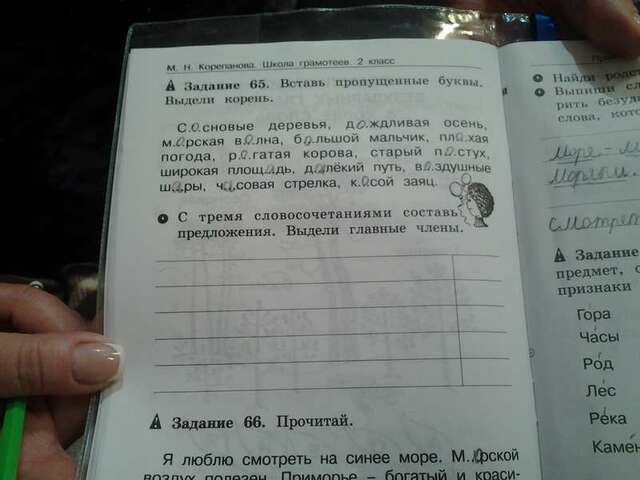 М. Н. Корепанова. Школа грамотеев. 2 класс
Задание 65. Вставь пропущенные буквы.
Выдели корень.
С.о.сновые деревья, до.ждливая осень,
м.о.рская в.о.лна, б.о.льшой мальчик, пл.о.хая
погода, р.о.гатая корова, старый п.а.стух,
широкая площ.а.дь, д.а.лёкий путь, в.о.здушные
ш.а.ры, ч.а.совая стрелка, к.о.сой заяц.
С тремя словосочетаниями составь
предложения. Выдели главные члены.
Задание 66. Прочитай.
Я люблю смотреть на синее море. М.о.рской
воздух полезен. Приморье – богатый и краси-
Найди
Выпиши
рить
слова,
Море –
смотрет
Задание
предмет, с
признаки
Гора
Часы
Род
Лес
Река
Камен